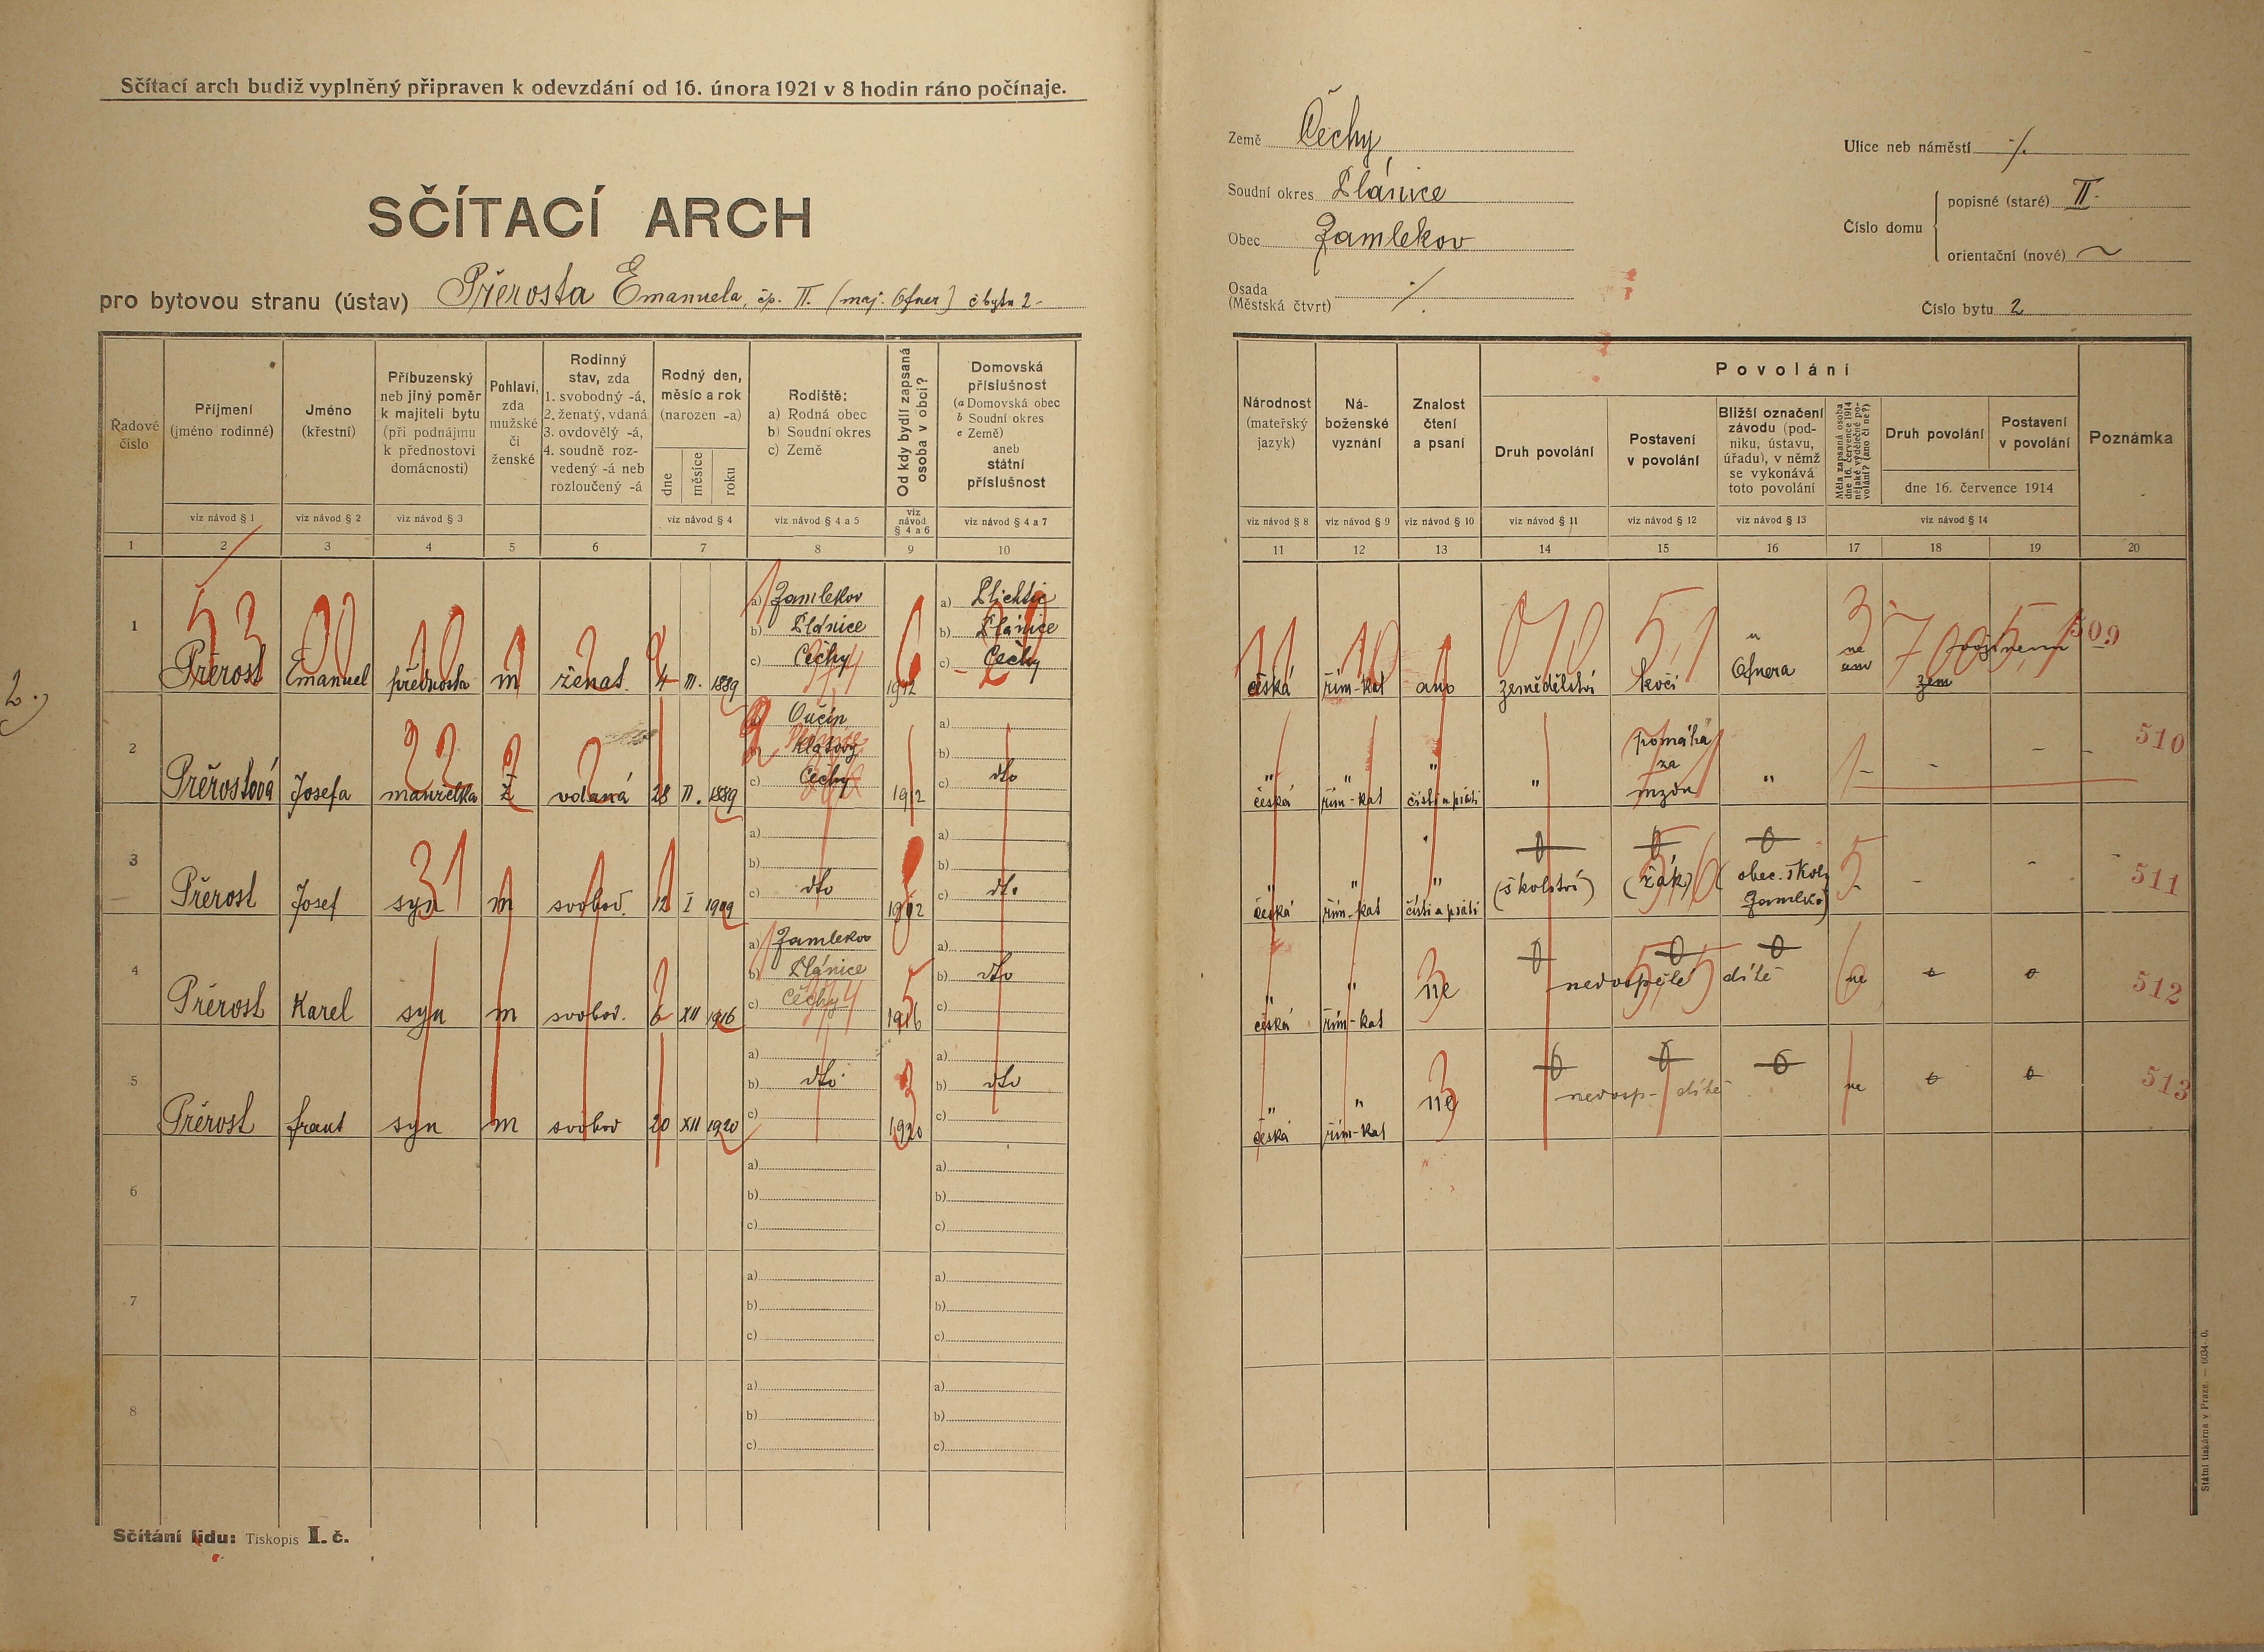 Sčítací arch budiž vyplněný připraven k odevzdání od 16. února 1921 v 8 hodin ráno počínaje.
SČÍTACÍ ARCH
pro bytovou stranu (ústav) Přerosta Emanuela, čp. II. (maj. Ofner) č bytu 2-
Země Čechy
Soudní okres Plánice
Obec Zamlekov
Osada ./.
(Městská čtvrt)
Ulice neb náměstí ./.
Číslo domu
popisné (staré) II.
orientační (nové) ~
Číslo bytu 2
Řadové číslo
Příjmení (jméno rodinné)
Jméno (křestní)
Příbuzenský neb jiný poměr k majiteli bytu (při podnájmu k přednostovi domácnosti)
Pohlaví, zda mužské či ženské
Rodinný stav, zda 1. svobodný -á, 2. ženatý, vdaná 3. ovdovělý -á, 4. soudně rozvedený -á neb rozloučený -á
Rodný den, měsíc a rok (narozen -a)
dne měsíce roku
Rodiště: a) Rodná obec b) Soudní okres c) Země
Od kdy bydlí zapsaná osoba v obci?
Domovská příslušnost (a Domovská obec b Soudní okres c Země) aneb státní příslušnost
Národnost (mateřský jazyk)
Náboženské vyznání
Znalost čtení a psaní
Povolání
Druh povolání
Postavení v povolání
Bližší označení závodu (podniku, ústavu, úřadu), v němž se vykonává toto povolání
Měla zapsaná osoba dne 16. července 1914 nějaké výdělečné povolání? (ano či ne?)
Druh povolání
Postavení v povolání
dne 16. července 1914
Poznámka
viz návod § 1 viz návod § 2 viz návod § 3 viz návod § 4 viz návod § 4 a 5 viz návod § 4 a 6 viz návod § 4 a 7
viz návod § 8 viz návod § 9 viz návod § 10 viz návod § 11 viz návod § 12 viz návod § 13 viz návod § 14
1 2 3 4 5 6 7 8 9 10
11 12 13 14 15 16 17 18 19 20
1 Přerost Emanuel přednosta m ženat. 4 III. 1889 a) Zamlekov b) Plánice c) Čechy 1912 a) Plichtic b) Plánice c) Čechy
česká řím-kat ano zemědělství kočí u Ofnera ne ano zem 509
2.)
2 Přěrostová Josefa manželka ž vdaná 28 II. 1889 a) Oučín b) Klatovy c) Čechy 1912 a) b) c) dto
" česká " řím-kat " čísti a psáti " pomáhá za mzdu " - - - 510
3 Přerost Josef syn m svobod. 12 I 1909 a) b) c) dto 1912 a) b) c) dto
" česká " řím-kat " čísti a psáti (školství) (žák) (obec. škol. Zamlekov) - - - 511
4 Přerost Karel syn m svobod. 6 XII 1916 a) Zamlekov b) Plánice c) Čechy 1916 a) b) dto c)
" česká " řím-kat ne nedospělé dítě ne 0 0 512
5 Přerost frant syn m svobov 20 XII 1920 a) b) dto c) 1920 a) b) dto c)
" česká " řím-kat ne nedosp- dítě ne 0 0 513
6 a) b) c) a) b) c)
7 a) b) c) a) b) c)
8 a) b) c) a) b) c)
Sčítání lidu: Tiskopis I. č.
Státní tiskárna v Praze. — 6034-0.